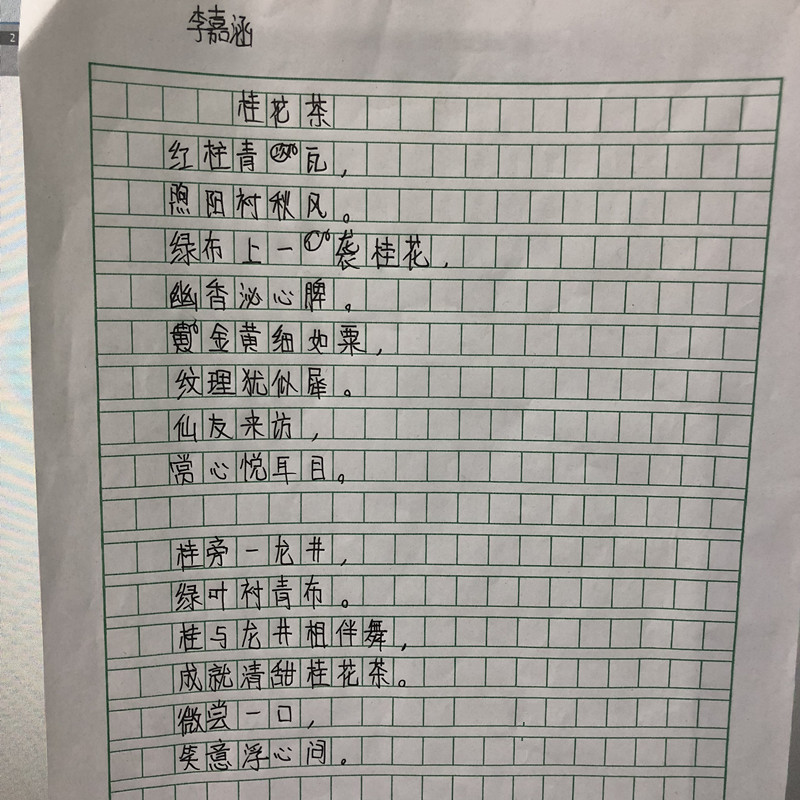 2
李嘉涵
桂花茶
红柱青瓦，
煦阳衬秋风。
绿布上一袭桂花，
幽香沁心脾。
金黄细如粟，
纹理犹似犀。
仙友来访，
赏心悦耳目。
桂旁一龙井，
绿叶衬青布。
桂与龙井相伴舞，
成就清甜桂花茶。
微尝一口，
笑意浮心间。